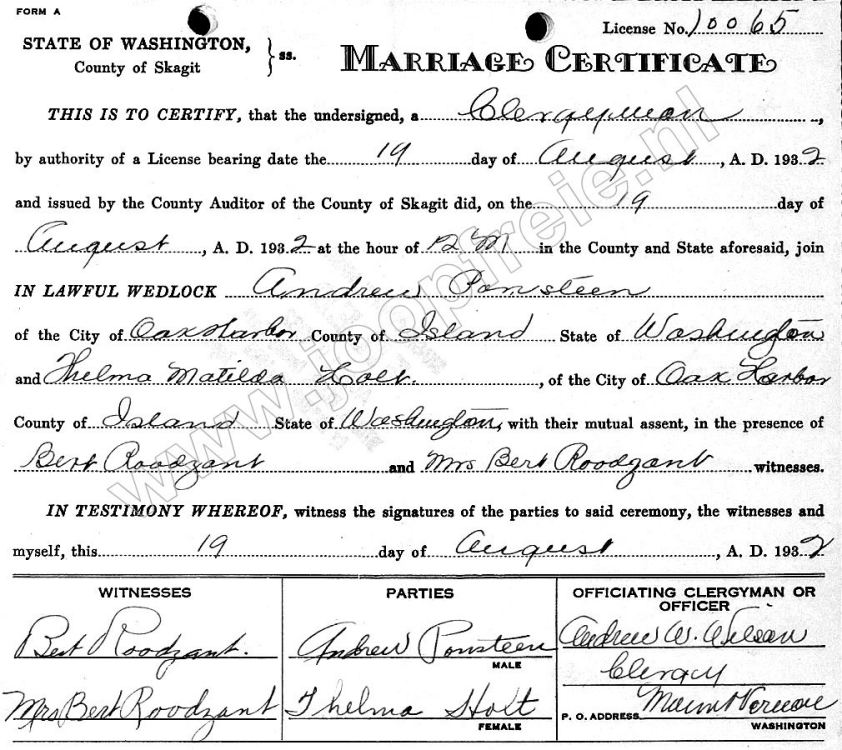 FORM A
License No. 10065
STATE OF WASHINGTON, } ss.
County of Skagit
MARRIAGE CERTIFICATE
THIS IS TO CERTIFY, that the undersigned, a Clergyman,
by authority of a License bearing date the 19 day of August, A. D. 1932
and issued by the County Auditor of the County of Skagit did, on the 19 day of
August, A. D. 1932 at the hour of 12 M in the County and State aforesaid, join
IN LAWFUL WEDLOCK Andrew Ponsteen
of the City of Oak Harbor County of Island State of Washington
and Thelma Matilda Holt, of the City of Oak Harbor
County of Island State of Washington, with their mutual assent, in the presence of
Bert Roodzant and Mrs Bert Roodzant witnesses.
IN TESTIMONY WHEREOF, witness the signatures of the parties to said ceremony, the witnesses and
myself, this 19 day of August, A. D. 1932
WITNESSES
Bert Roodzant.
Mrs Bert Roodzant
PARTIES
Andrew Ponsteen
MALE
Thelma Holt
FEMALE
OFFICIATING CLERGYMAN OR
OFFICER
Andrew W. Wilson
Clergy
P. O. ADDRESS Mount Vernon
WASHINGTON
www.joopfreie.nl